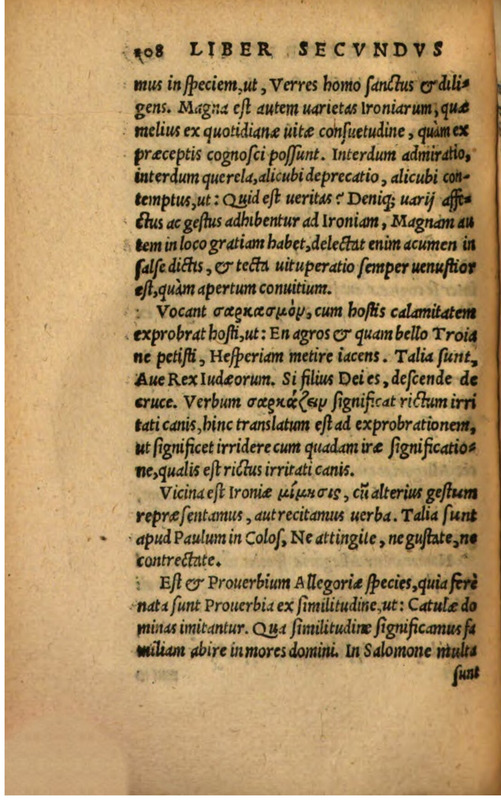 108 LIBER SECVNDVS
mus in speciem, ut, Verres homo sanctus & dili-
gens. Magna est autem uarietas Ironiarum, quæ
melius ex quotidianæ uitæ consuetudine, quàm ex
præceptis cognosci possunt. Interdum admiratio,
interdum querela, alicubi deprecatio, alicubi con-
temptus, ut: Quid est ueritas? Deniq; uarij affe-
ctus ac gestus adhibentur ad Ironiam, Magnam au
tem in loco gratiam habet, delectat enim acumen in
salse dictis, & tecta uituperatio semper uenustior
est, quàm apertum conuitium.
Vocant σαρκασμὸν, cum hostis calamitatem
exprobrat hosti, ut: En agros & quam bello Troia
ne petisti, Hesperiam metire iacens. Talia sunt,
Aue Rex Iudæorum. Si filius Dei es, descende de
cruce. Verbum σαρκάζειν significat rictum irri
tati canis, hinc translatum est ad exprobrationem,
ut significet irridere cum quadam iræ significatio-
ne, qualis est rictus irritati canis.
Vicina est Ironiæ μίμησις, cũ alterius gestum
repræsentamus, aut recitamus uerba. Talia sunt
apud Paulum in Colos, Ne attingile, ne gustate, ne
contrectate.
Est & Prouerbium Allegoriæ species, quia ferè
nata sunt Prouerbia ex similitudine, ut: Catulæ do
minas imitantur. Qua similitudine significamus fa
miliam abire in mores domini. In Salomone multa
sunt